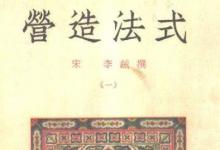 營造法式
宋 李誡撰
(一)